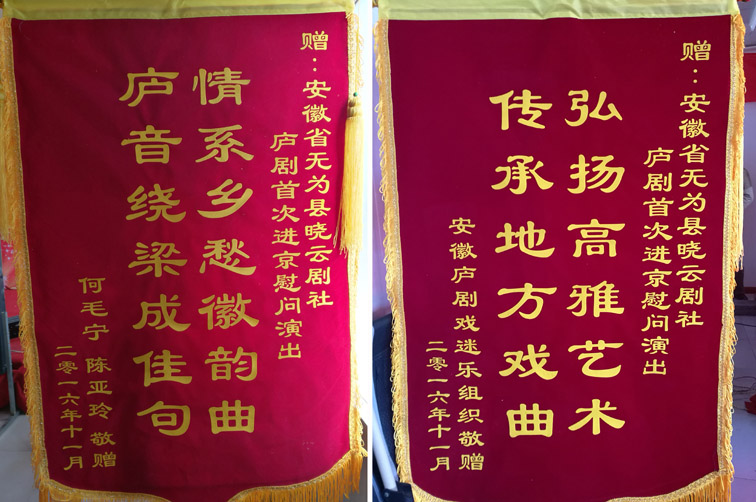 赠：安徽省无为县晓云剧社
庐剧首次进京慰问演出
情系乡愁徽韵曲
庐音绕梁成佳句
何毛宁 陈亚玲 敬赠
二零一六年十一月
赠：安徽省无为县晓云剧社
庐剧首次进京慰问演出
弘扬高雅艺术
传承地方戏曲
安徽庐剧戏迷乐组织敬赠
二零一六年十一月